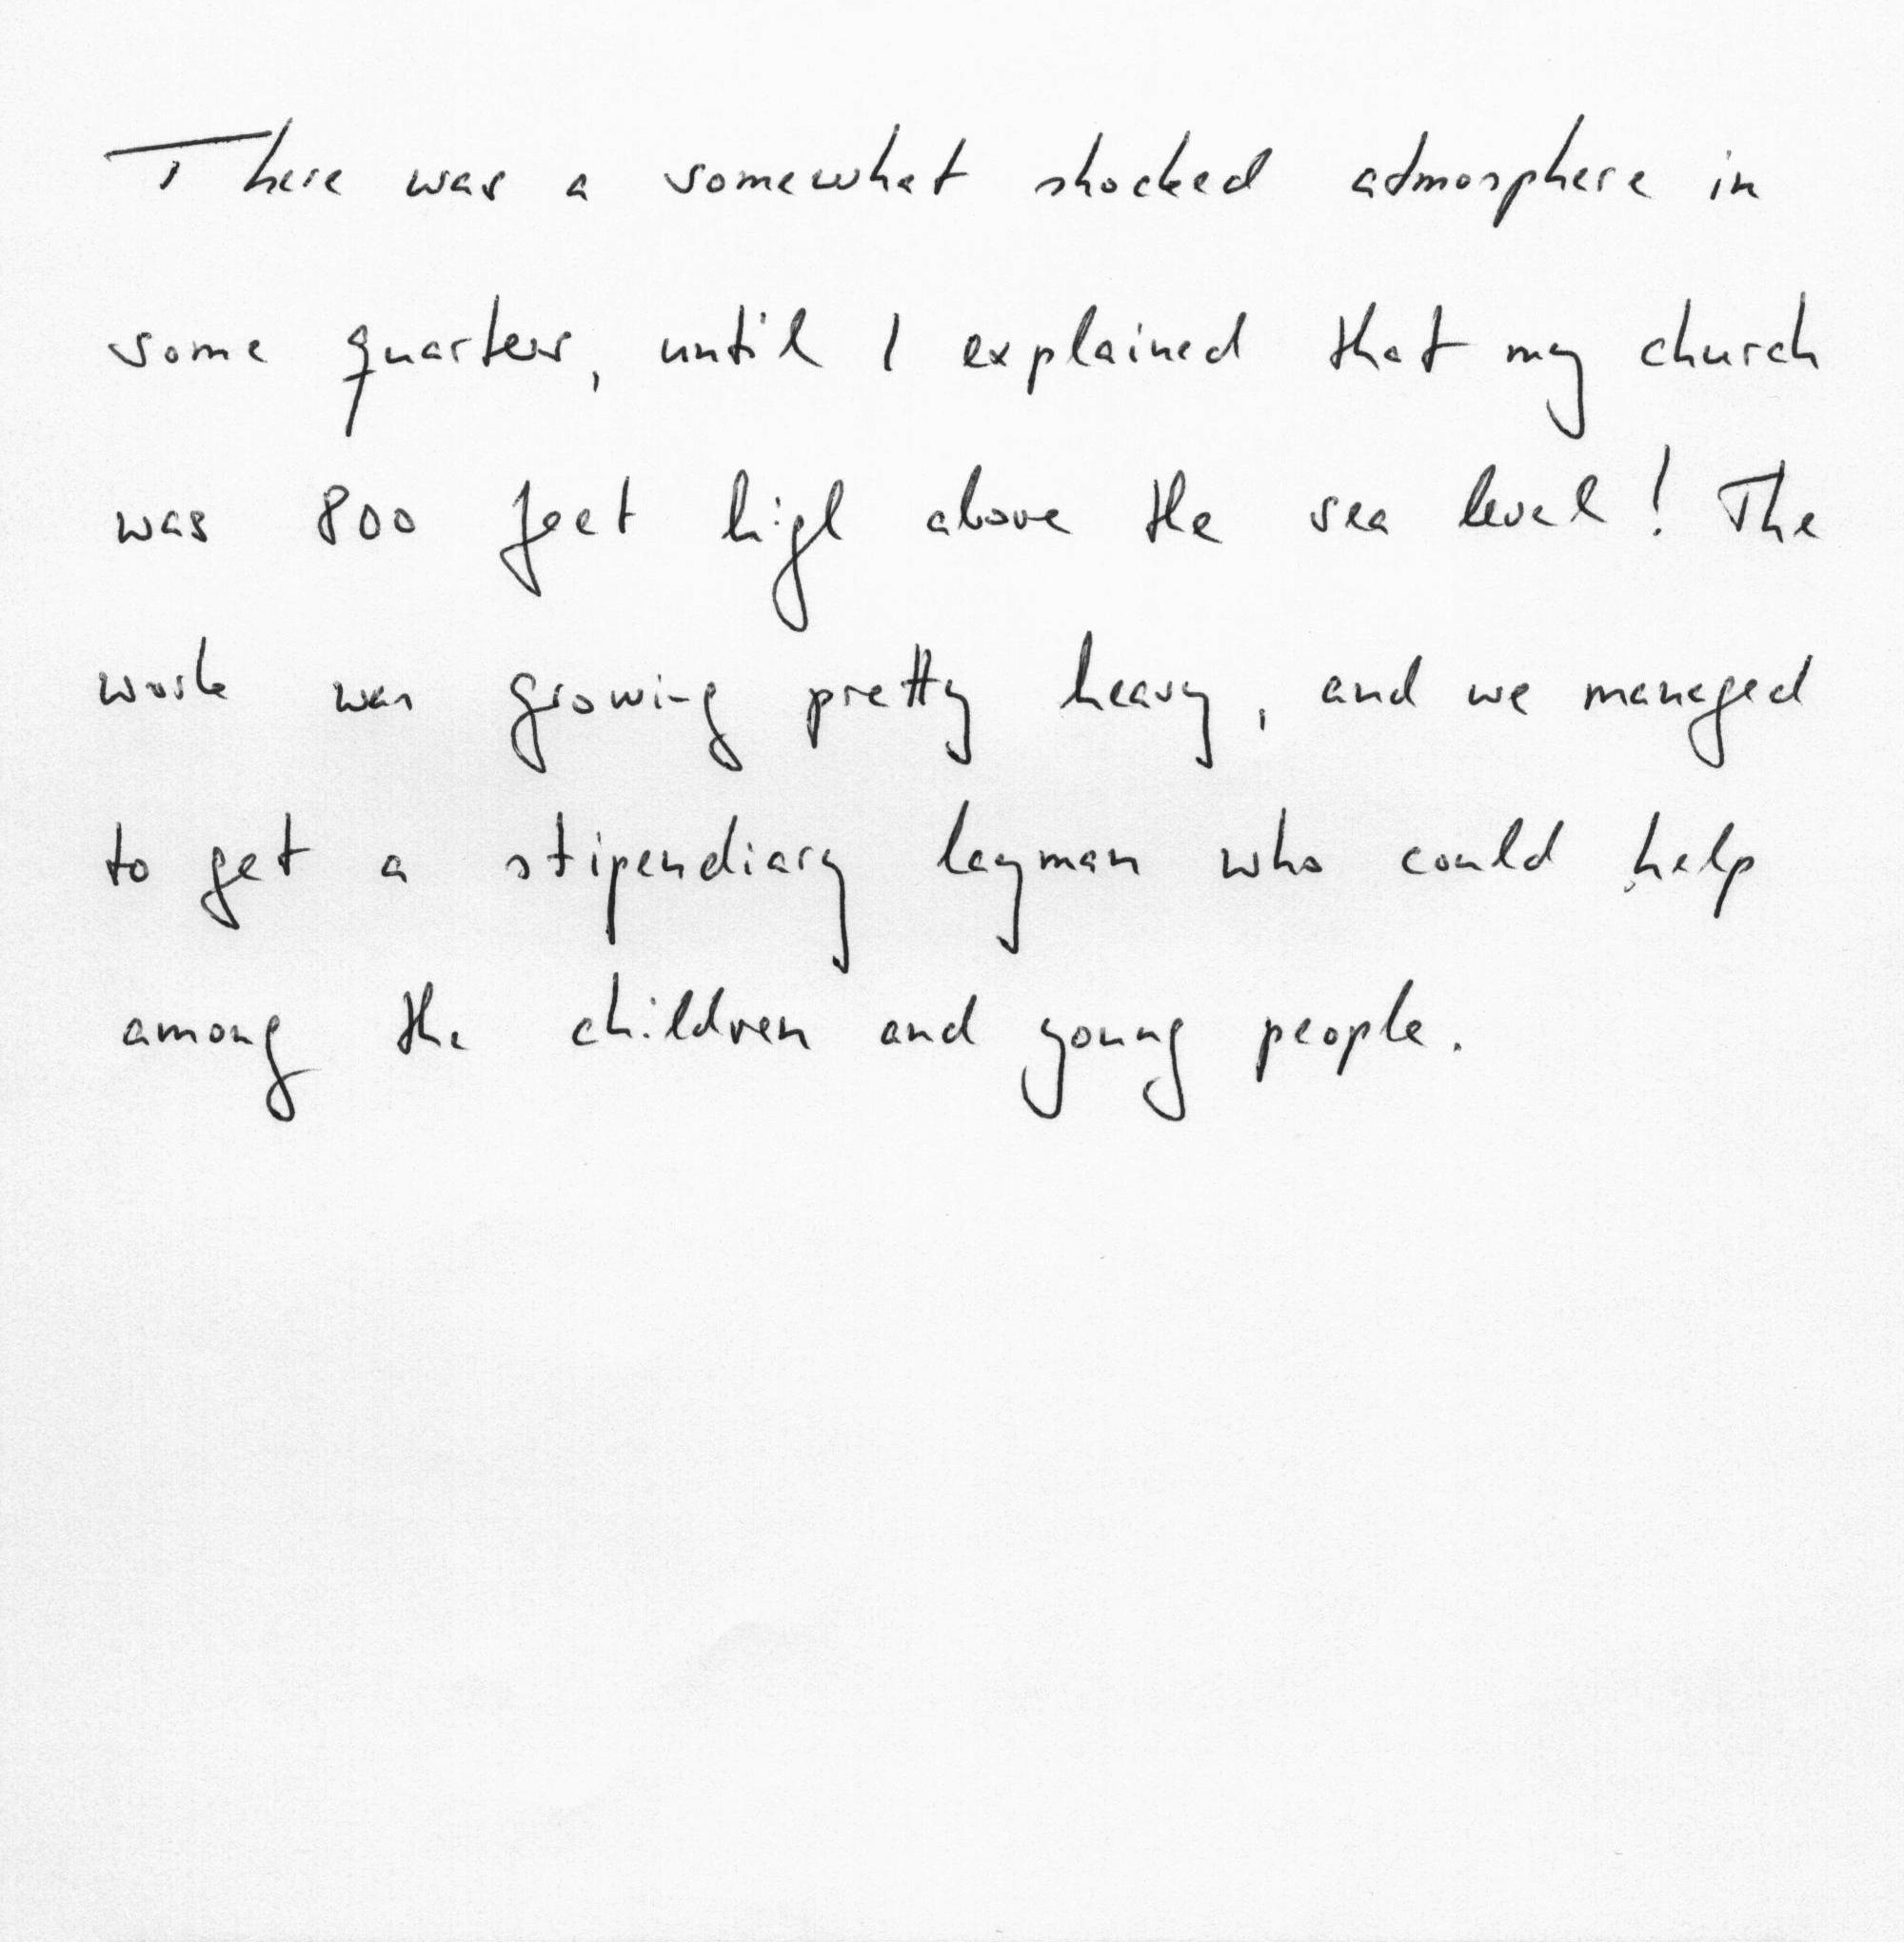 There was a somewhat shocked atmosphere in
some quarters, until I explained that my church
was 800 feet high above the sea level! The
work was growing pretty heavy, and we managed
to get a stipendiary layman who could help
among the children and young people.